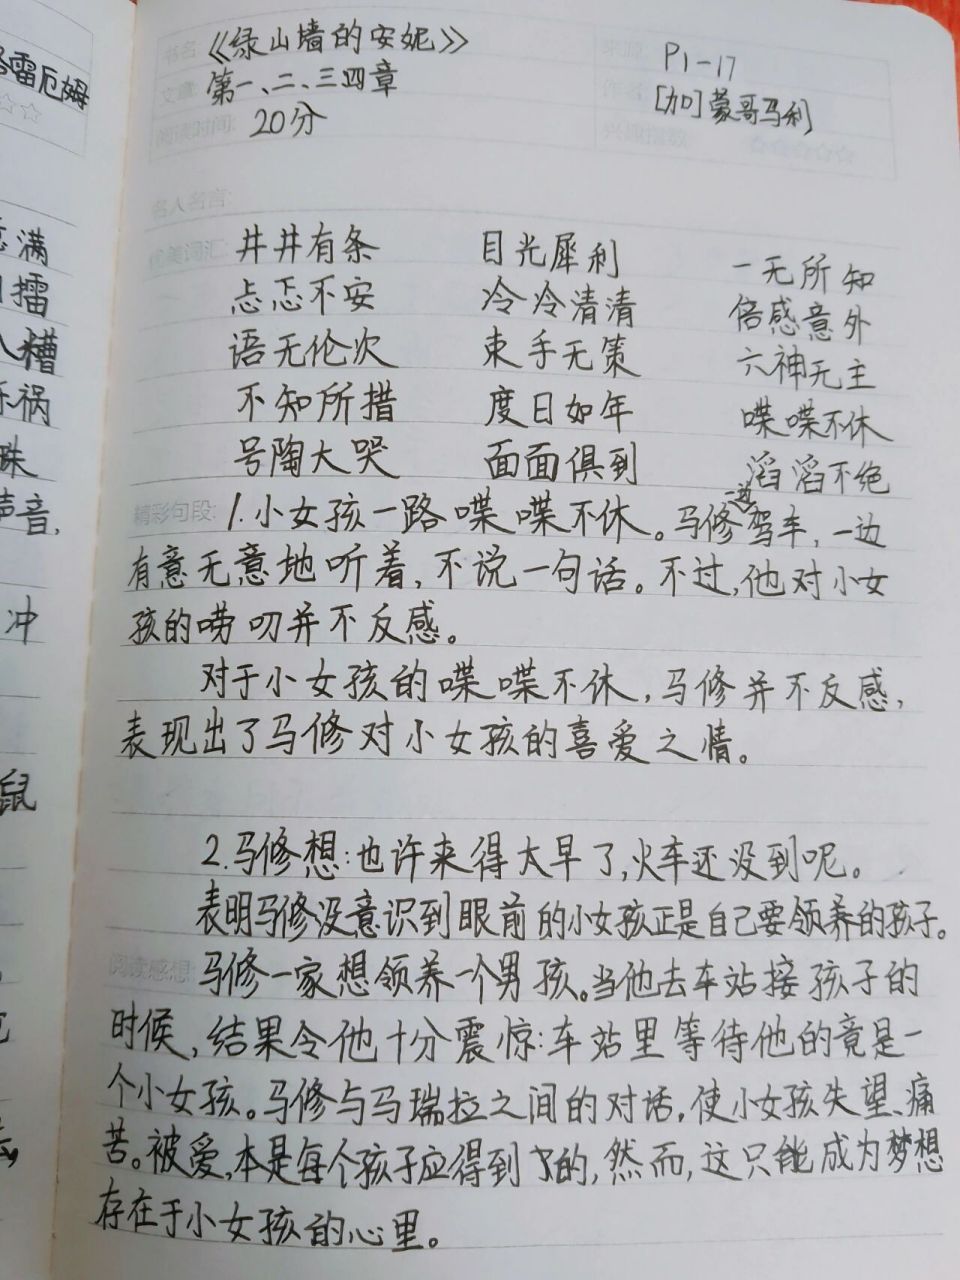 雷厄姆
满
擂
糟
祸
珠
声音,
冲
鼠
书名: 《绿山墙的安妮》 来源: P1-17
文章: 第一、二、三四章 作者: [加]蒙哥马利
阅读时间: 20分 兴趣指数: ☆☆☆☆☆
名人名言:
优美词汇: 井井有条 目光犀利 一无所知
忐忑不安 冷冷清清 倍感意外
语无伦次 束手无策 六神无主
不知所措 度日如年 喋喋不休
号陶大哭 面面俱到 滔滔不绝
精彩句段: 1.小女孩一路喋喋不休。马修一边驾车,一边
有意无意地听着,不说一句话。不过,他对小女
孩的唠叨并不反感。
对于小女孩的喋喋不休,马修并不反感,
表现出了马修对小女孩的喜爱之情。
2.马修想:也许来得太早了,火车还没到呢。
表明马修没意识到眼前的小女孩正是自己要领养的孩子。
阅读感想: 马修一家想领养一个男孩。当他去车站接孩子的
时候,结果令他十分震惊:车站里等待他的竟是一
个小女孩。马修与马瑞拉之间的对话,使小女孩失望、痛
苦。被爱,本是每个孩子应得到的,然而,这只能成为梦想
存在于小女孩的心里。